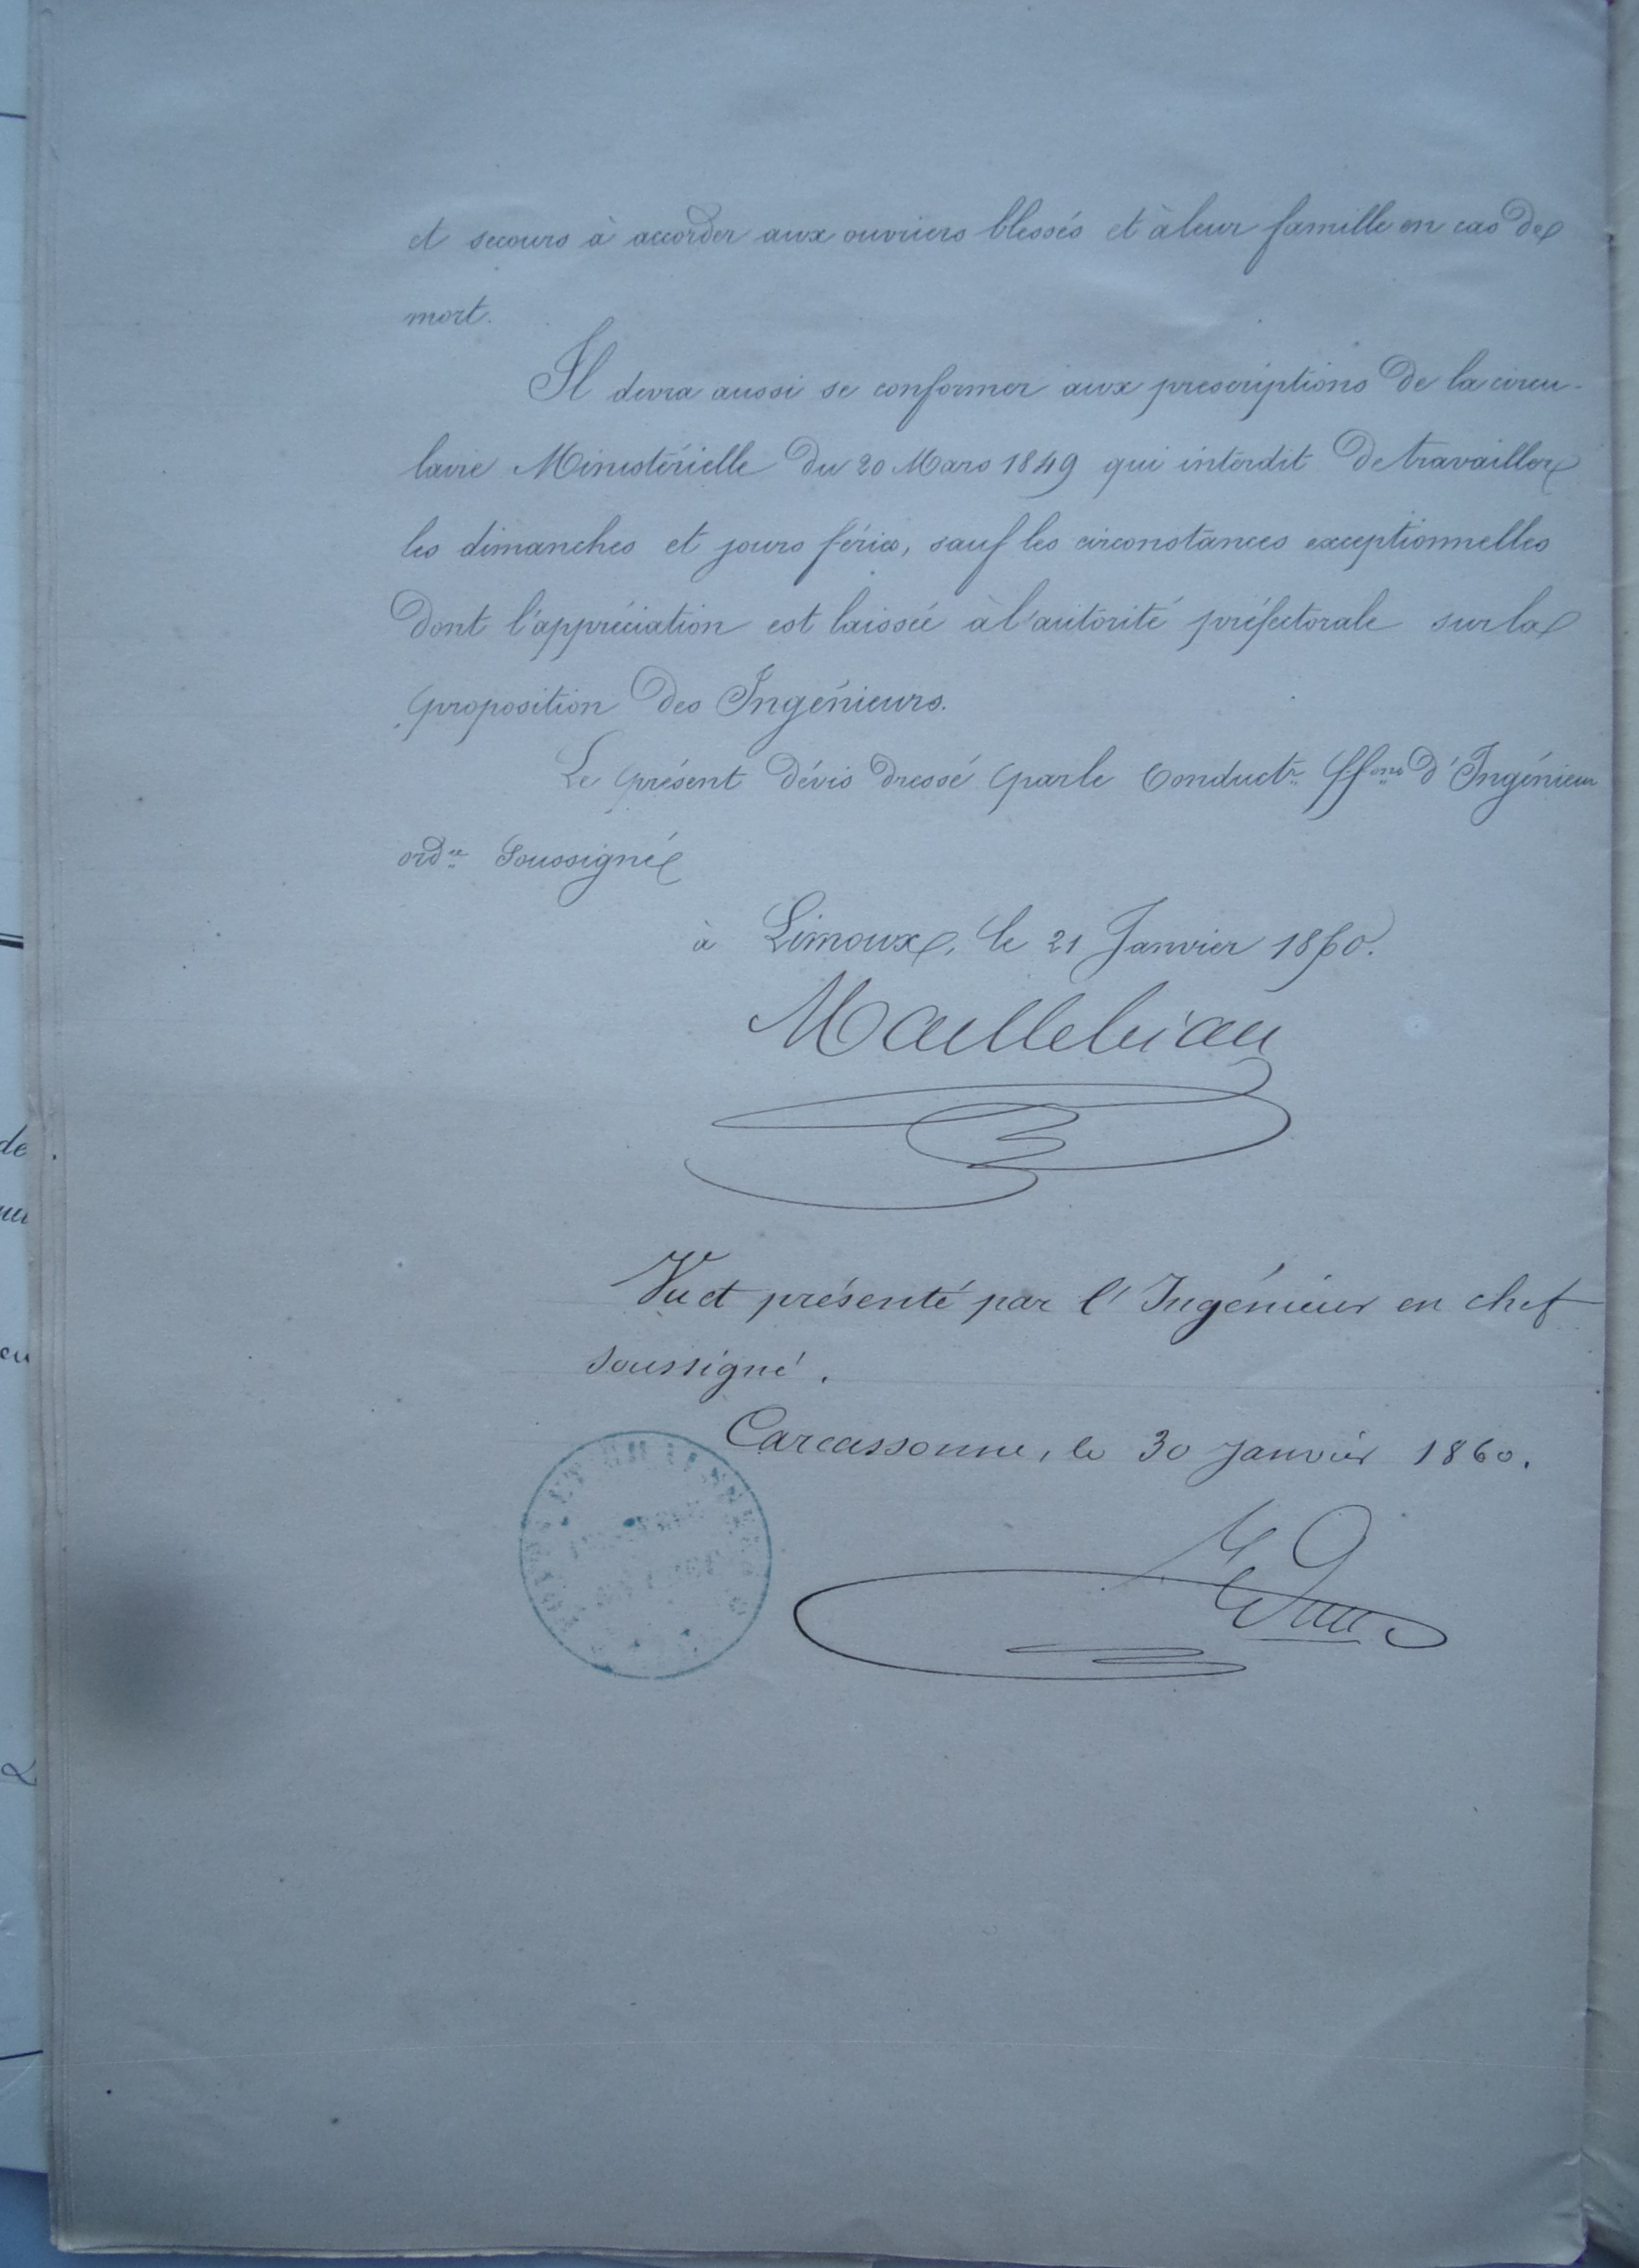 et secours à accorder aux ouvriers blessés et à leur famille en cas de
mort.
Il devra aussi se conformer aux prescriptions de la circu-
laire Ministérielle du 20 Mars 1849 qui interdit de travailler
les dimanches et jours fériés, sauf les circonstances exceptionnelles
dont l'appréciation est laissée à l'autorité préfectorale sur la
proposition des Ingénieurs.
Le présent dévis dressé par le Conductr ffons d'Ingénieur
ordre Soussigné
à Limoux, le 21 Janvier 1860.
Maillebiau
Vu et présenté par l'Ingénieur en chef
soussigné.
Carcassonne, le 30 Janvier 1860.
de
eu